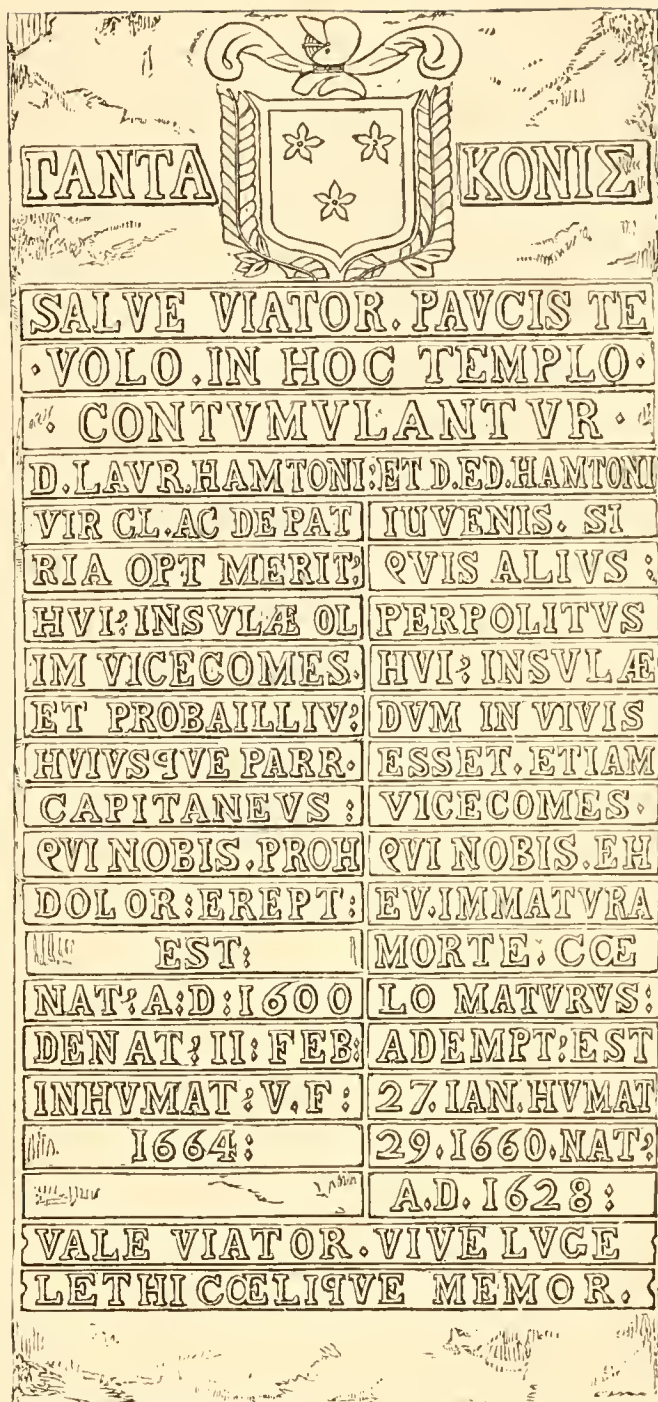 ΓΑΝΤΑ ΚΟΝΙΣ
SALVE VIATOR. PAVCIS TE
·VOLO. IN HOC TEMPLO·
· CONTVMVLANTVR ·
D. LAVR. HAMTONI: ET D. ED. HAMTONI
VIR CL. AC DE PAT
RIA OPT MERIT:
HVI: INSVLÆ OL
IM VICECOMES.
ET PROBAILLIV:
HVIVSQVE PARR·
CAPITANEVS :
QVI NOBIS. PROH
DOLOR: EREPT:
EST:
NAT: A: D: 1600
DENAT: II: FEB:
INHVMAT: V. F :
1664:
IUVENIS. SI
QVIS ALIVS :
PERPOLITVS
HVI: INSVLÆ
DVM IN VIVIS
ESSET. ETIAM
VICECOMES·
QVI NOBIS. EH
EV. IMMATVRA
MORTE: CŒ
LO MATVRVS:
ADEMPT: EST
27. IAN. HVMAT
29. 1660. NAT:
A.D. 1628 :
VALE VIATOR. VIVE LVGE
LETHI CŒLIQVE MEMOR.